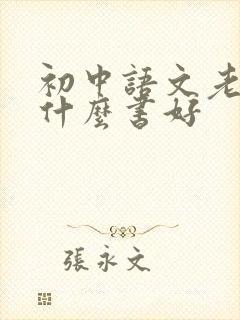 初中語文老
什麼書好
張永文